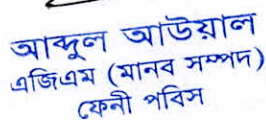 আব্দুল আউয়াল
এজিএম (মানব সম্পদ)
ফেনী পবিস